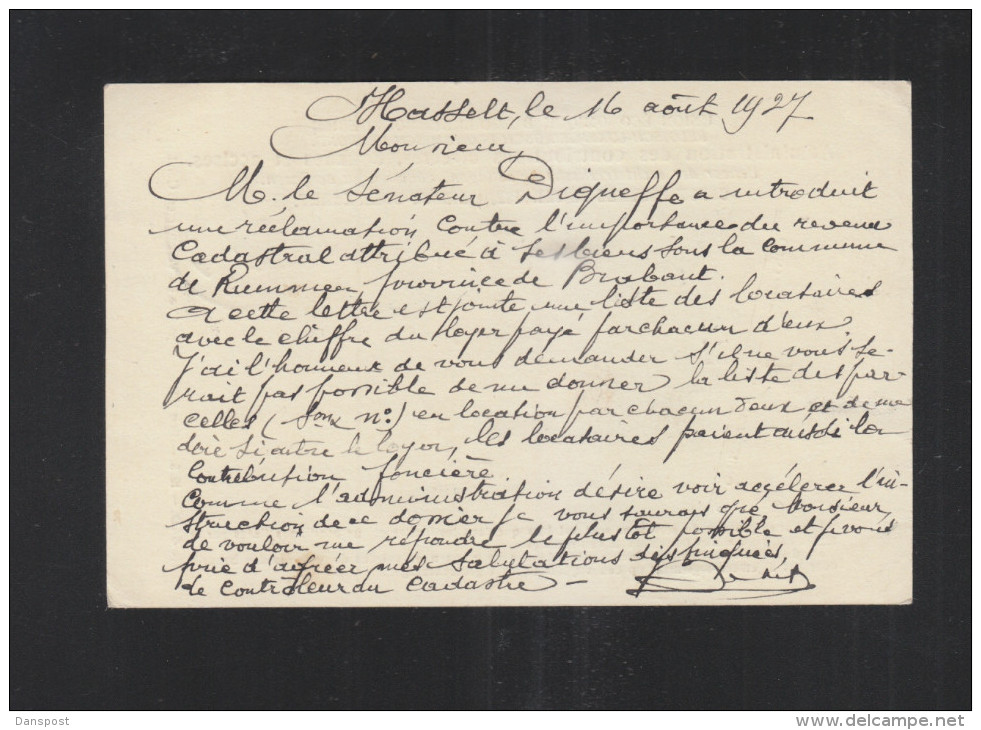 Hasselt, le 16 août 1927
Monsieur,
M. le Sénateur Digneffe a introduit
une réclamation contre l'importance du revenu
Cadastral attribué à ses biens sous la commune
de Rummen, province de Brabant.
A cette lettre est jointe une liste des locataires
avec le chiffre du loyer payé par chacun d'eux.
J'ai l'honneur de vous demander s'il ne vous se-
rait pas possible de me donner la liste des par-
celles (Son x n°) en location par chacun d'eux et de me
dire si outre le loyer, les locataires paient aussi la
Contribution foncière
Comme l'administration désire voir accélérer l'in-
struction de ce dossier je vous saurais gré Monsieur,
de vouloir me répondre le plus tôt possible et vous
prie d'agréer mes salutations distinguées,
Le Contrôleur du Cadastre —
Danspost
www.delcampe.net